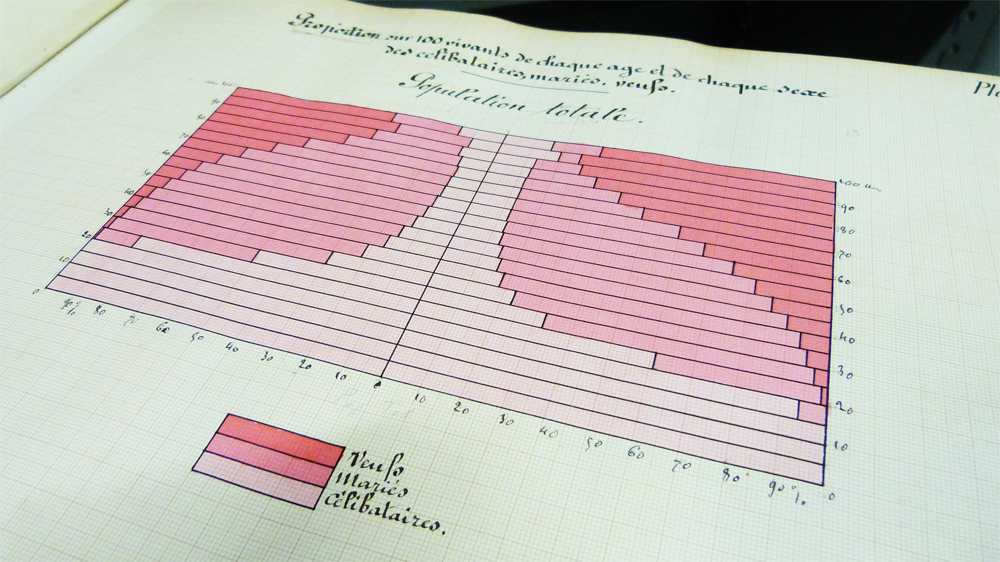 Proportion sur 100 vivants de chaque age et de chaque sexe
des célibataires, mariés, veufs.
Population totale.
90
80
70
60
50
40
30
20
10
0
100 an
90
80
70
60
50
40
30
20
10
0
90 % 80 70 60 50 40 30 20 10 0 10 20 30 40 50 60 70 80 90 %
Veufs
Mariés
Célibataires.